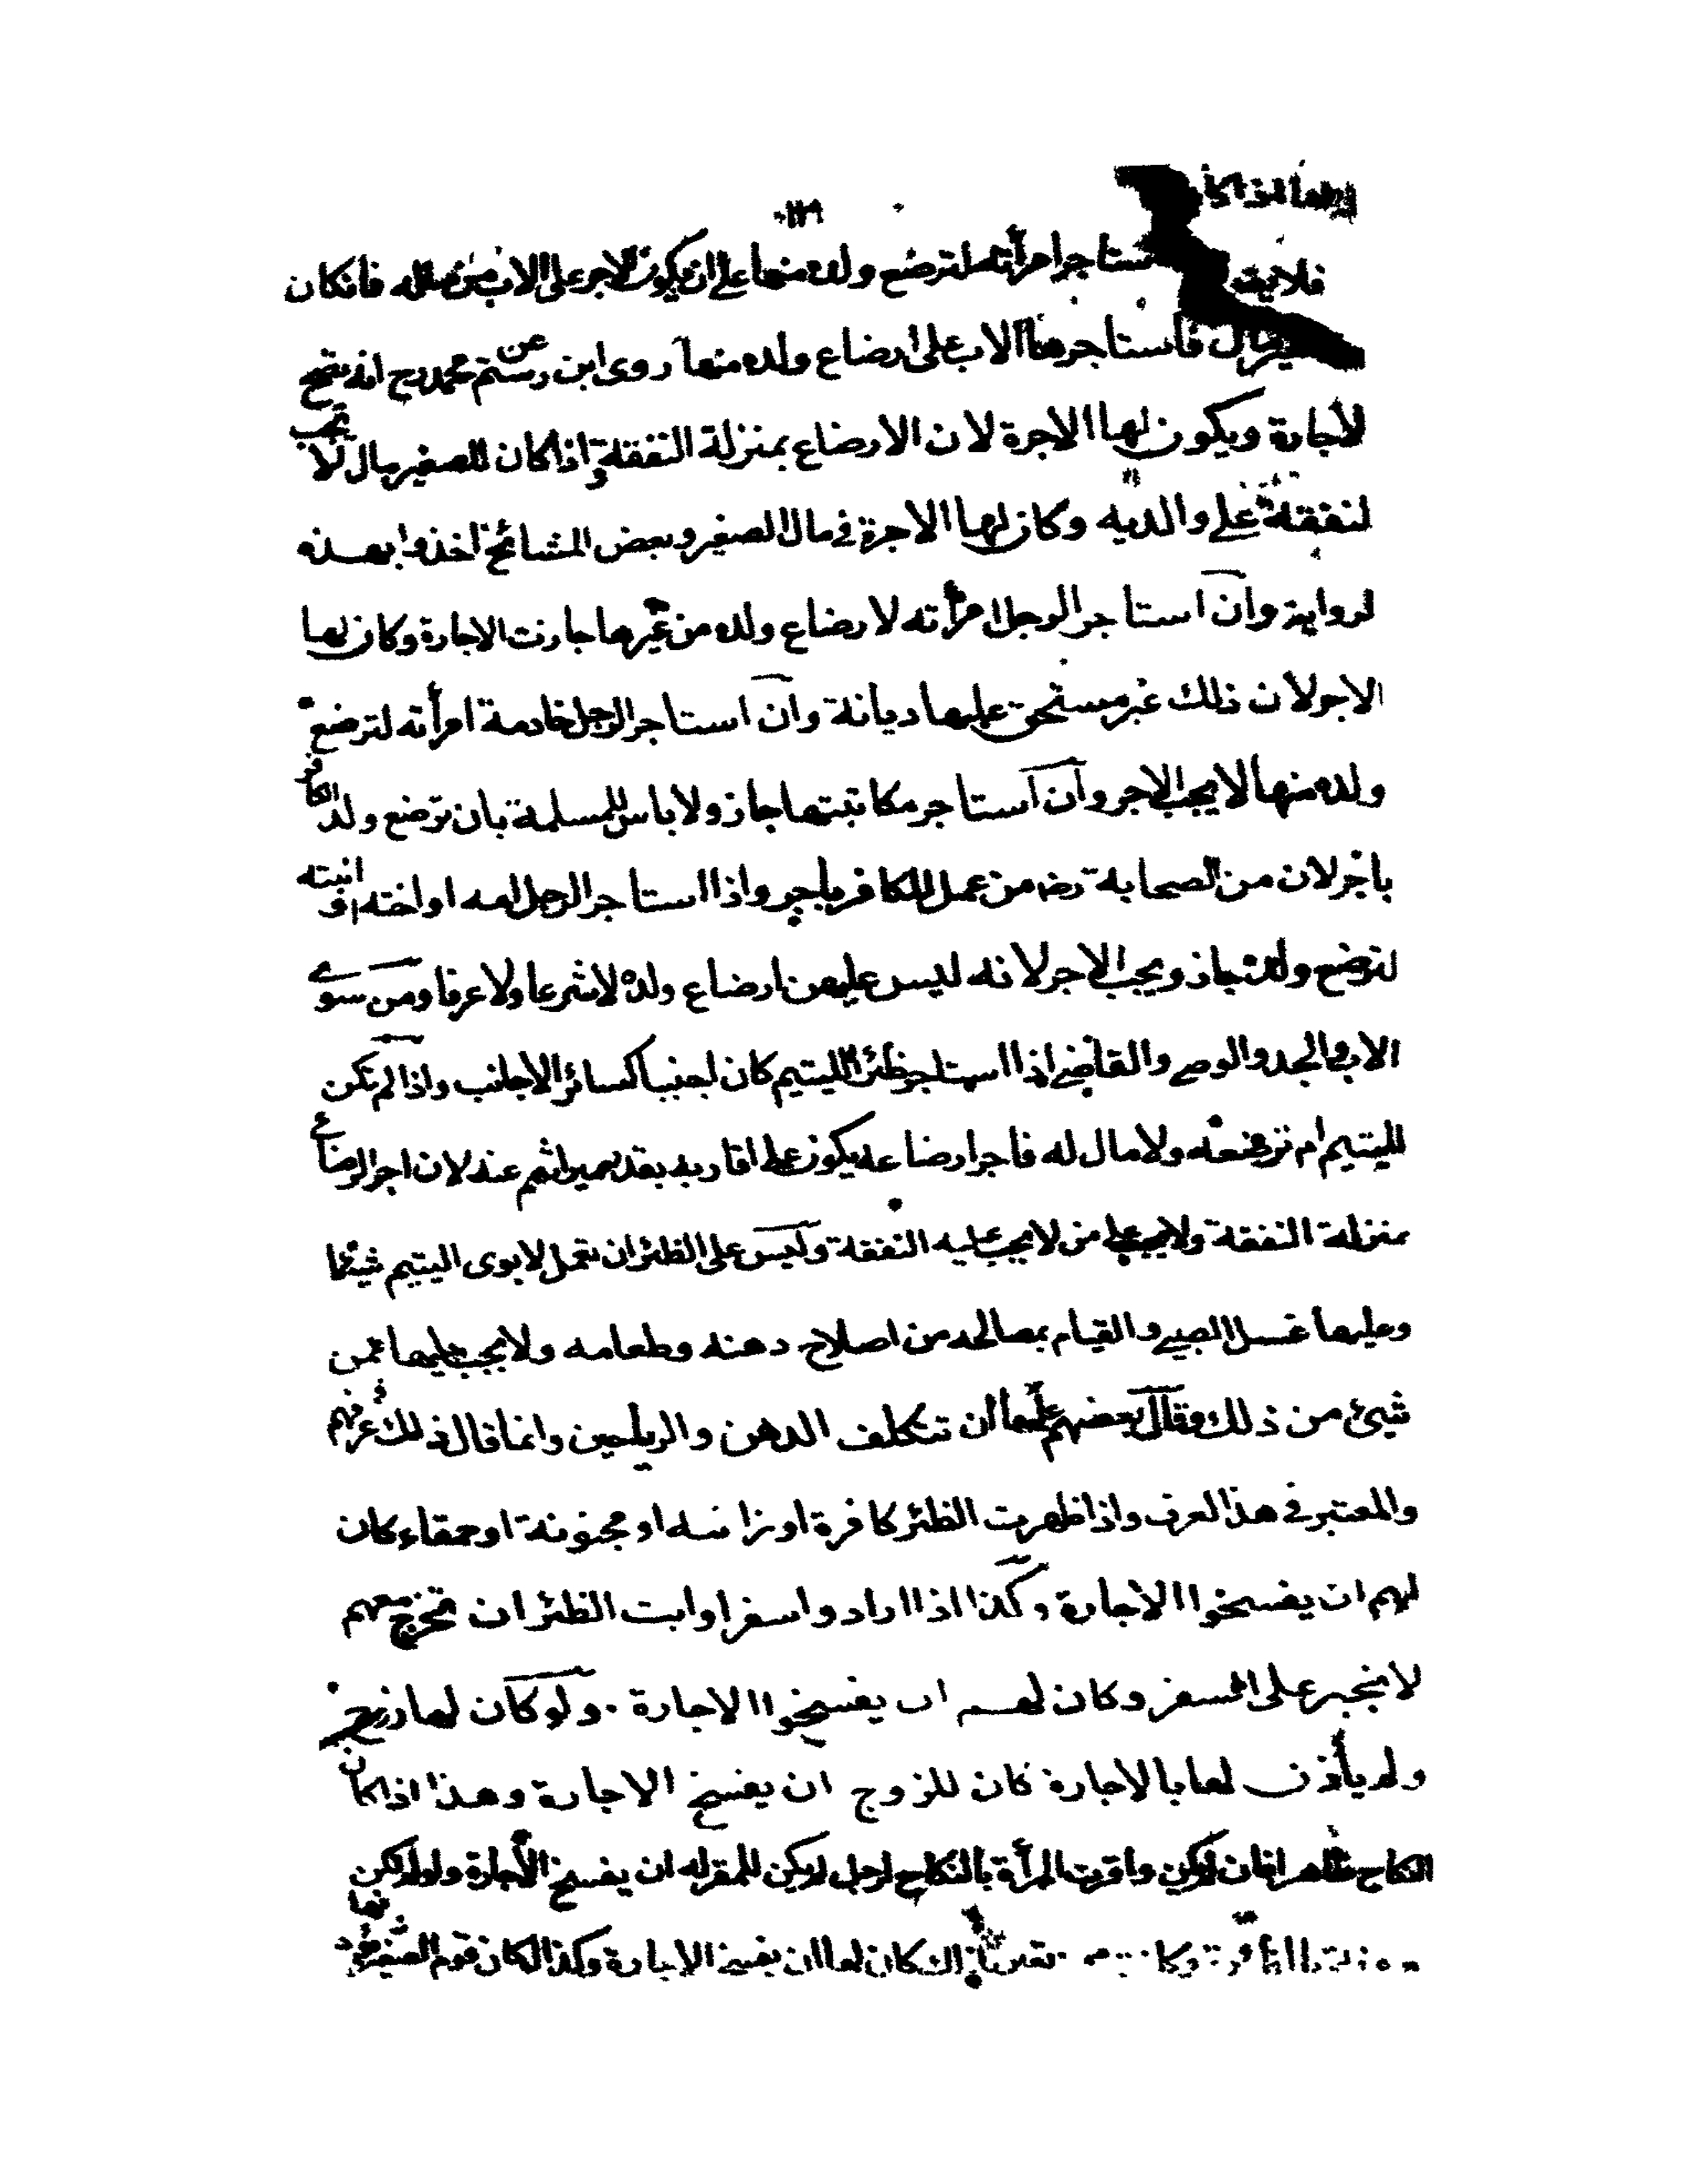 استاجر امرأته لترضع ولده منها على ان يكون الاجر على الاب من ماله فانكان
مال فاستاجرها الاب على ارضاع ولده منها روى ابن رستم عن محمد رح انه يصح
لاجارة ويكون لها الاجرة لان الارضاع بمنزلة النفقة واذا كان للصغير مال لا تجب
لنفقة على والديه وكان لها الاجرة في مال الصغير وبعض المشائخ اخذوا بهذه
لرواية وان استاجر الرجل امرأته لارضاع ولده من غيرها جازت الاجارة وكان لها
الاجر لان ذلك غير مستحق عليها ديانة وان استاجر الرجل خادمة امرأته لترضع
ولده منها لا يجب الاجر وان استاجر مكاتبتها جاز ولا باس للمسلمة بان ترضع ولد الكافر
باجر لان من الصحابة رضـ من عمل للكافر باجر واذا استاجر الرجل امه او اخته او ابنته
لترضع ولده جاز ويجب الاجر لانه ليس عليهن ارضاع ولده لا شرعا ولا عرفا ومن سوى
الاب والجد والوصي والقاضي اذا استاجر ظئرا لليتيم كان اجنبيا كسائر الاجانب واذا لم تكن
لليتيم ام ترضعه ولا مال له فاجر ارضاعه يكون على اقاربه بقدر ميراثهم عنه لان اجر الرضاع
بمنزلة النفقة ولا يجب على من لا يجب عليه النفقة وليس على الظئر ان تعمل لابوى اليتيم شيئا
وعليها غسل الصبي والقيام بمصالحه من اصلاح دهنه وطعامه ولا يجب عليها ثمن
شيئ من ذلك وقال بعضهم عليها ان تتكلف الدهن والرياحين وانما قال ذلك في عرفهم
والمعتبر في هذا العرف واذا ظهرت الظئر كافرة او زانيه او مجنونة او حمقاء كان
لهم ان يفسخوا الاجارة وكذا اذا ارادوا سفرا وابت الظئر ان تخرج معهم
لا تجبر على السفر وكان لهم ان يفسخوا الاجارة ولو كان لها زوج
ولم يأذن لها بالاجارة كان للزوج ان يفسخ الاجارة وهذا اذا كان
النكاح ظاهرا فان لم يكن واقرت المرأة بالنكاح لرجل لم يكن للمقر له ان يفسخ الاجارة ولو لم تكن
كان لها ان يفسخ الاجارة وكذا لو كان قوم الصغير